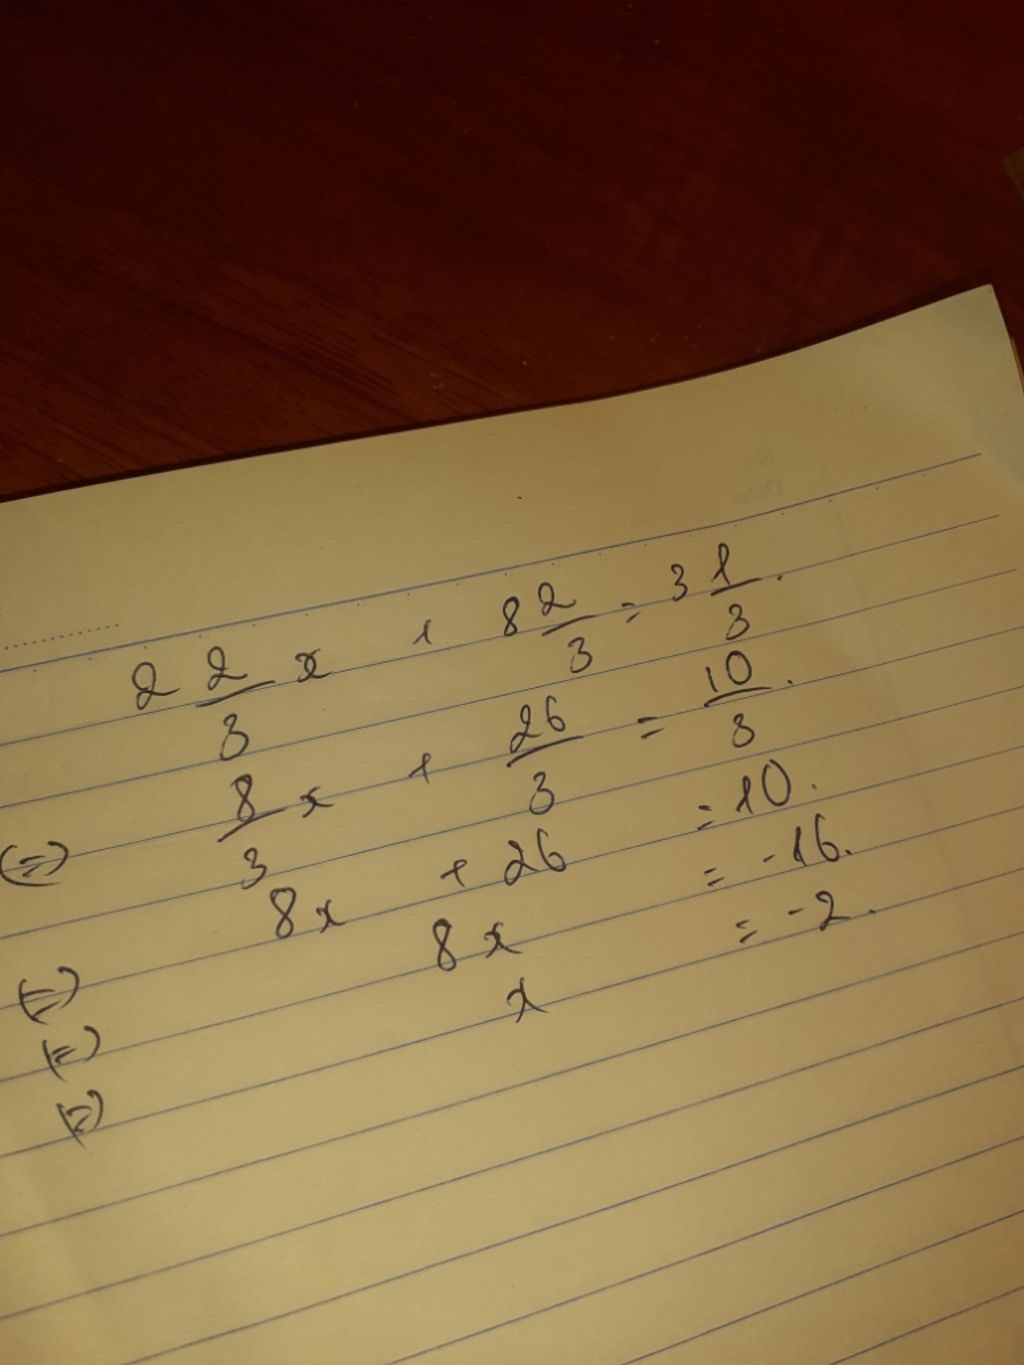 2 2/3 x + 8 2/3 = 3 1/3.
(=) 8/3 x + 26/3 = 10/3.
(=) 8x + 26 = 10.
(=) 8x = -16.
(=) x = -2.